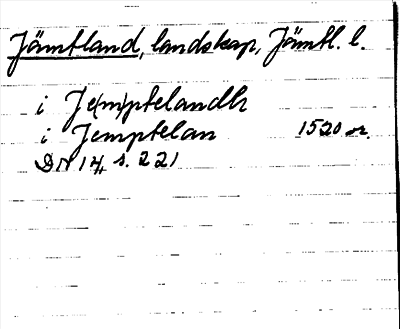 Jämtland, landskap, Jämtl. l.
i Je(m)ptelandh
i Jemptelan 1520 or.
DN 14, s. 221